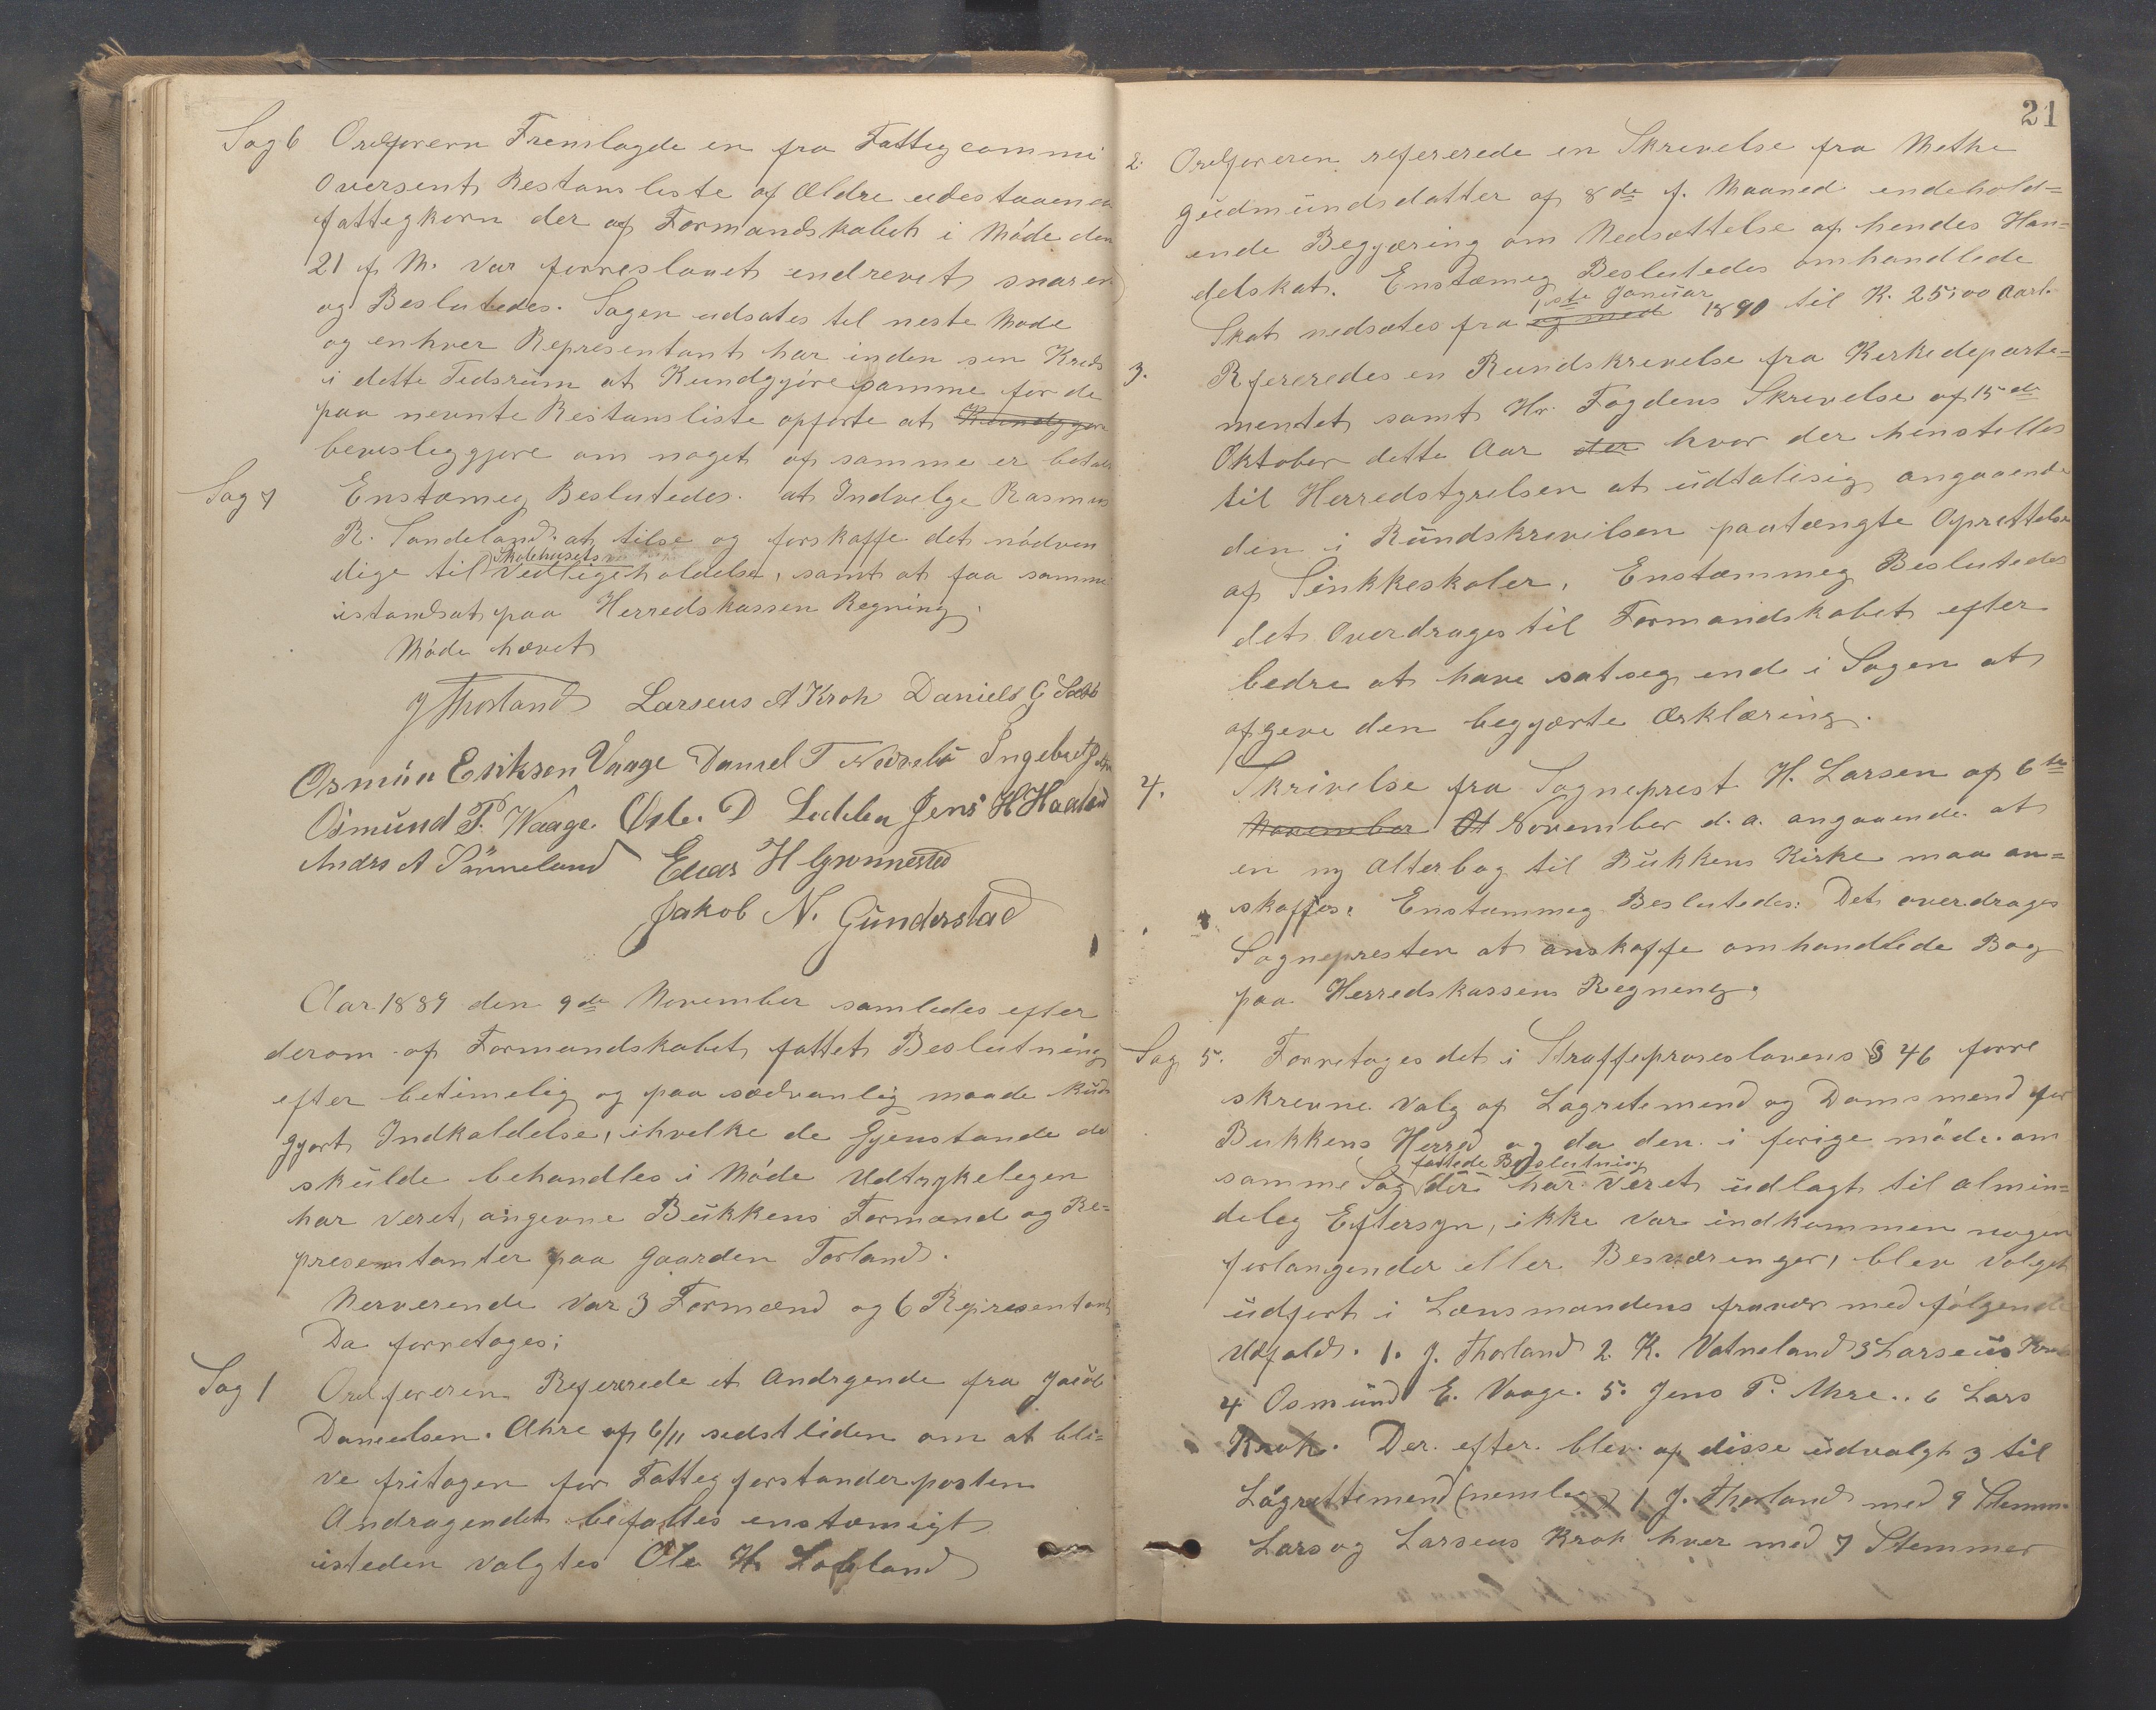 Sag 6 Ordførern Fremlagde en fra Fattegcommi
Oversent Restansliste af Ældre udestaaende
fattegkorn der af Formandskabet i Møde den
21 f. M. var forreslaaet endrevet snaren
og Beslutedes. Sagen udsates til neste Møde
og enhver Representant har inden sen Kreds
i dette Tedsrum at Kundgjøre samme for de
paa nevnte Restansliste opførte at Kundgjøre
bevesleggjøre om noget af samme er betalt
Sag 7 Enstæmeg Beslutedes. at Indvelge Rasmus
R. Sandeland at tilse og forskaffe det nödven
Skolehusets
dige til Vedligeholdelse, samt at faa samme
istandsat paa Herredskassen Regning.
Möde hævet
J Thorland Larseus A Krok Daniels G
Osmun Eriksen Vaage Daniel T
Osmund P. Waage. Osle. D Jens H Haaland
Andrs A Sönneland H Grønnestad
Jakob N. Gunderstad
Aar 1889 den 9de November samledes efter
derom af Formandskabet fattet Beslutning
efter betimelig og paa sædvanlig maade kund
gjort Indkaldelse, ihvelke de Gjenstande de
skulde behandles i Möde Udtrykelegen
har veret, angevne Bukkens Formænd og Re=
presentanter paa Gaarden Torland.
Nerverende var 3 Formænd og 6 Representant
Da forretages:
Sag 1 Ordføreren Refererede et Andrgende fra Jacob
Danielsen. Ahre af 6/11 sedstliden om at bli=
ve fritagen for Fattegforstanderposten
Andragendet befattes enstæmigt
isteden valgtes Ole H. Lobland
21
2. Ordføreren refererede en Skrevelse fra Methe
Gudmundsdatter af 8de f. Maaned endehold=
ende Begjæring om Nedsættelse af hendes Han=
delskat. Enstæmeg Beslutedes omhandlede
1ste Januar
Skat nedsates fra og med 1890 til K. 25:00 Aarl.
3. Refereredes en Rundskrevelse fra Kerkedeparte=
mentet samt Hr. Fogdens Skrevelse af 15de
Oktober dette Aar der hvor der henstilles
til Herredstyrelsen at udtalesig angaaende
den i Rundskrevilsen paatængte Oprettelse
af Sinkkeskoler. Enstæmmeg Beslutedes
det Overdrages til Formandskabet efter
bedre at have satseg end i Sagen at
afgeve den begjærte Ærklæring.
4. Skrivelse fra Sogneprest H. Larsen af 6te
November Ot November d. a. angaaende at
en ny Alterbog til Bukkens Kirke maa an=
skaffes. Enstæmmeg Beslutedes: Det overdrages
Sognepresten at anskaffe omhandlede Bog
paa Herredskassens Regneng.
Sag 5. Forretoges det i Straffeproseslovens § 46 forre
skrevne Valg af Lagretemend og Domsmend for
Bukkens Herred og da den i forige möde. om
fattede Beslutning
samme Sag der har veret udlagt til almin=
deleg Eftersyn, ikke var indkommen nogen
forlangender eller Besværenger, blev Valget
udført i Lænsmandens fravær med følgende
Udfald. 1. J. Thorland 2. K. Vatneland 3 Larseus Krok
4 Osmund E. Vaage. 5. Jens P. Ahre.. 6 Lars
Krok. Der. efter. blev. af disse udvalgt 3 til
Lagrettemend (nemleg) 1 J. Thorland med 9 Stemmer
Lars og Larseus Krok hver med 7 Stemmer